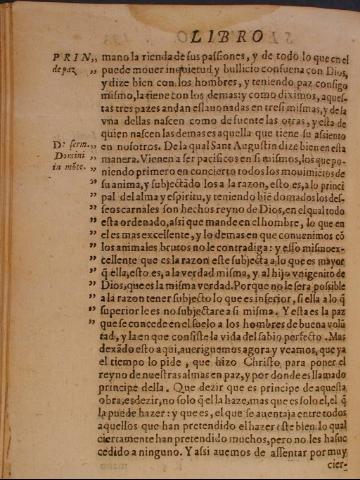 LIBRO
PRIN,, mano la rienda de sus passiones, y de todo lo que en el
de paz. ,, puede mouer inquietud y bullicio consuena con Dios,
,, y dize bien con los hombres, y teniendo paz consigo
mismo, la tiene con los demas: y como diximos, aques-
tas tres pazes andan eslauonadas entre si mismas, y de la
vna dellas nascen como de fuente las otras, y esta de
quien nascen las demas es aquella que tiene su assiento
D. serm. ,, en nosotros. De la qual Sant Augustin dize bien en esta
Domini ,, manera. Vienen a ser pacificos en si mismos, los que po-
in mõte. ,, niendo primero en concierto todos los mouimiẽtos de
,, su anima, y subjectãdo los a la razon, esto es, a lo princi
,, pal del alma y espiritu, y teniendo biẽ domados los des-
,, seos carnales son hechos reyno de Dios, en el qual todo
,, esta ordenado, assi que mande en el hombre, lo que en
,, el es mas excellente, y lo demas en que conuenimos cõ
,, los animales brutos no le contradiga: y esso mismo ex-
,, cellente que es la razon este subjecta a lo que es mayor
,, q̃ ella, esto es, a la verdad misma, y al hijo vnigenito de
,, Dios, que es la misma verdad. Porque no le sera possible
,, a la razon tener subjecto lo que es inferior, si ella a lo q̃
,, superior le es no subjectare a si misma. Y esta es la paz
,, que se concede en el suelo a los hombres de buena volũ
tad, y la en que consiste la vida del sabio perfecto. Mas
dexãdo esto aqui, aueriguemos agora y veamos, que ya
el tiempo lo pide, que hizo Christo para poner el
reyno de nuestras almas en paz, y por donde es llamado
principe della. Que dezir que es principe de aquesta
obra, es dezir, no solo q̃ el la haze, mas que es solo el, el q̃
la puede hazer: y que es, el que se auentaja entre todos
aquellos que han pretendido el hazer este bien, lo qual
ciertamente han pretendido muchos, pero no les ha suc
cedido a ninguno. Y assi auemos de assentar por muy
cier-